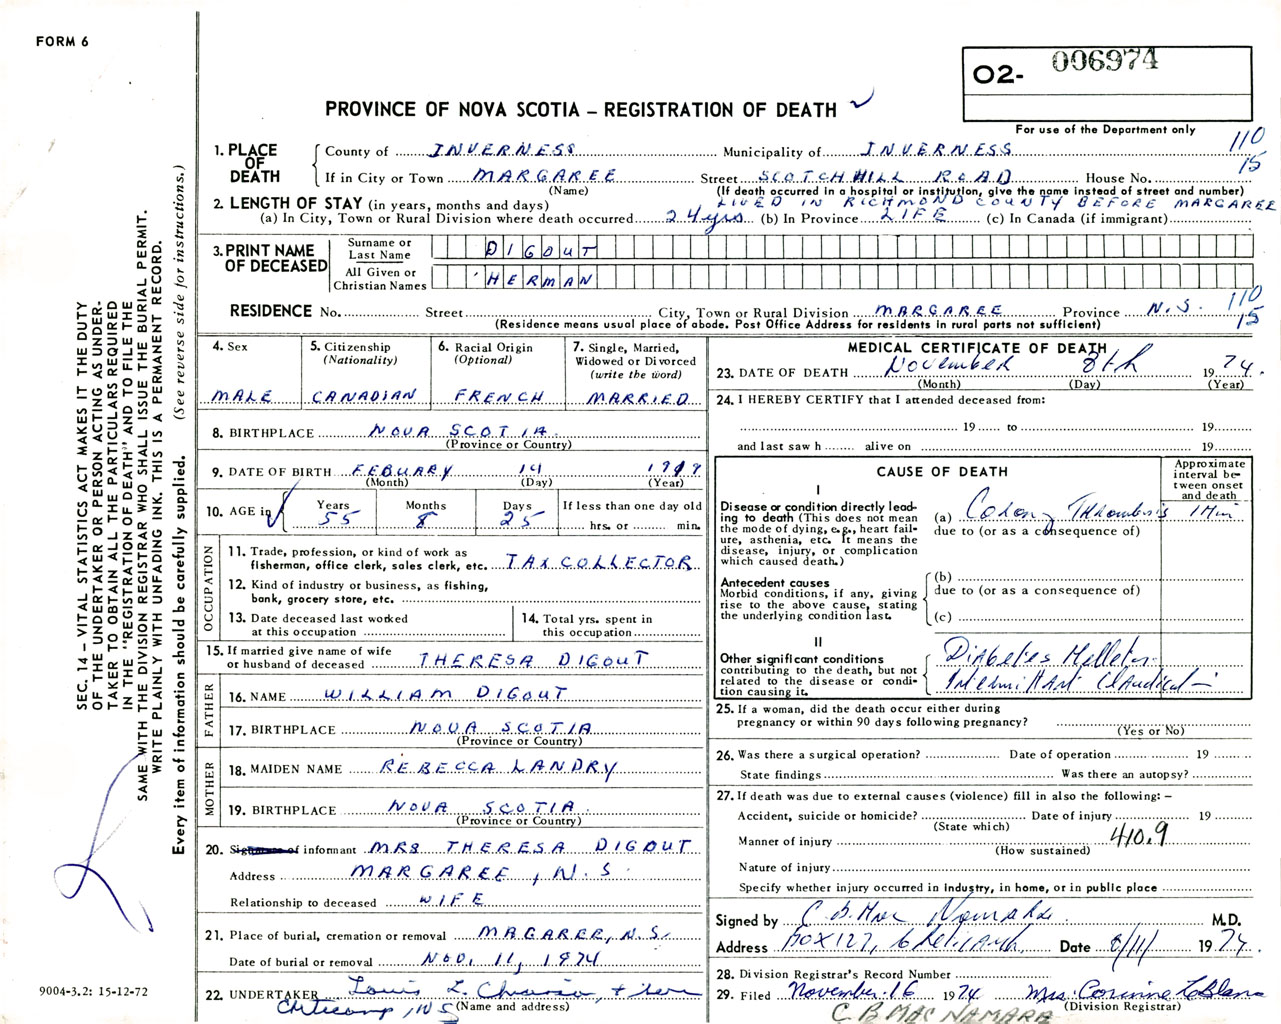 FORM 6
O2- 006974
PROVINCE OF NOVA SCOTIA – REGISTRATION OF DEATH
For use of the Department only
110
15
1. PLACE OF DEATH
County of INVERNESS Municipality of INVERNESS
If in City or Town MARGAREE Street SCOTCH HILL ROAD House No.
(Name) (If death occurred in a hospital or institution, give the name instead of street and number)
2. LENGTH OF STAY (in years, months and days) LIVED IN RICHMOND COUNTY BEFORE MARGAREE
(a) In City, Town or Rural Division where death occurred 24 yrs (b) In Province LIFE (c) In Canada (if immigrant)
3. PRINT NAME OF DECEASED
Surname or Last Name DIGOUT
All Given or Christian Names HERMAN
110
15
RESIDENCE No. Street City, Town or Rural Division MARGAREE Province N.S.
(Residence means usual place of abode. Post Office Address for residents in rural parts not sufficient)
4. Sex
MALE
5. Citizenship
(Nationality)
CANADIAN
6. Racial Origin
(Optional)
FRENCH
7. Single, Married,
Widowed or Divorced
(write the word)
MARRIED
8. BIRTHPLACE NOVA SCOTIA
(Province or Country)
9. DATE OF BIRTH FEBUARY 14 1919
(Month) (Day) (Year)
10. AGE in
Years 55
Months 8
Days 25
If less than one day old
hrs. or min.
OCCUPATION
11. Trade, profession, or kind of work as
fisherman, office clerk, sales clerk, etc. TAX COLLECTOR
12. Kind of industry or business, as fishing,
bank, grocery store, etc.
13. Date deceased last worked
at this occupation
14. Total yrs. spent in
this occupation
15. If married give name of wife
or husband of deceased THERESA DIGOUT
FATHER
16. NAME WILLIAM DIGOUT
17. BIRTHPLACE NOVA SCOTIA
(Province or Country)
MOTHER
18. MAIDEN NAME REBECCA LANDRY
19. BIRTHPLACE NOVA SCOTIA
(Province or Country)
20. Signature of informant MRS THERESA DIGOUT
Address MARGAREE, N.S.
Relationship to deceased WIFE
21. Place of burial, cremation or removal MAGAREE, N.S.
Date of burial or removal NOV. 11, 1974
22. UNDERTAKER Louis L.
Cheticamp, NS (Name and address)
MEDICAL CERTIFICATE OF DEATH
23. DATE OF DEATH November 8th 1974.
(Month) (Day) (Year)
24. I HEREBY CERTIFY that I attended deceased from:
19 to 19
and last saw h alive on 19
CAUSE OF DEATH
Approximate
interval be-
tween onset
and death
I
Disease or condition directly lead-
ing to death (This does not mean
the mode of dying, e.g., heart fail-
ure, asthenia, etc. It means the
disease, injury, or complication
which caused death.)
(a) Coronary Thrombosis 1 Min
due to (or as a consequence of)
Antecedent causes
Morbid conditions, if any, giving
rise to the above cause, stating
the underlying condition last.
(b)
due to (or as a consequence of)
(c)
II
Other significant conditions
contributing to the death, but not
related to the disease or condi-
tion causing it.
Diabetes Mellitus
Intermittent Claudication
25. If a woman, did the death occur either during
pregnancy or within 90 days following pregnancy?
(Yes or No)
26. Was there a surgical operation? Date of operation 19
State findings Was there an autopsy?
27. If death was due to external causes (violence) fill in also the following: –
Accident, suicide or homicide? Date of injury 19
(State which)
Manner of injury 410.9
(How sustained)
Nature of injury
Specify whether injury occurred in industry, in home, or in public place
Signed by C B Mac Namara M.D.
Address BOX 127, Cheticamp Date 8/11/ 1974.
28. Division Registrar's Record Number
29. Filed November 16 1974 Mrs. Corinne LeBlanc
(Division Registrar)
C B MACNAMARA
SEC. 14 – VITAL STATISTICS ACT MAKES IT THE DUTY
OF THE UNDERTAKER OR PERSON ACTING AS UNDER-
TAKER TO OBTAIN ALL THE PARTICULARS REQUIRED
IN THE "REGISTRATION OF DEATH" AND TO FILE THE
SAME WITH THE DIVISION REGISTRAR WHO SHALL ISSUE THE BURIAL PERMIT.
WRITE PLAINLY WITH UNFADING INK. THIS IS A PERMANENT RECORD.
Every item of information should be carefully supplied. (See reverse side for instructions.)
9004-3.2: 15-12-72